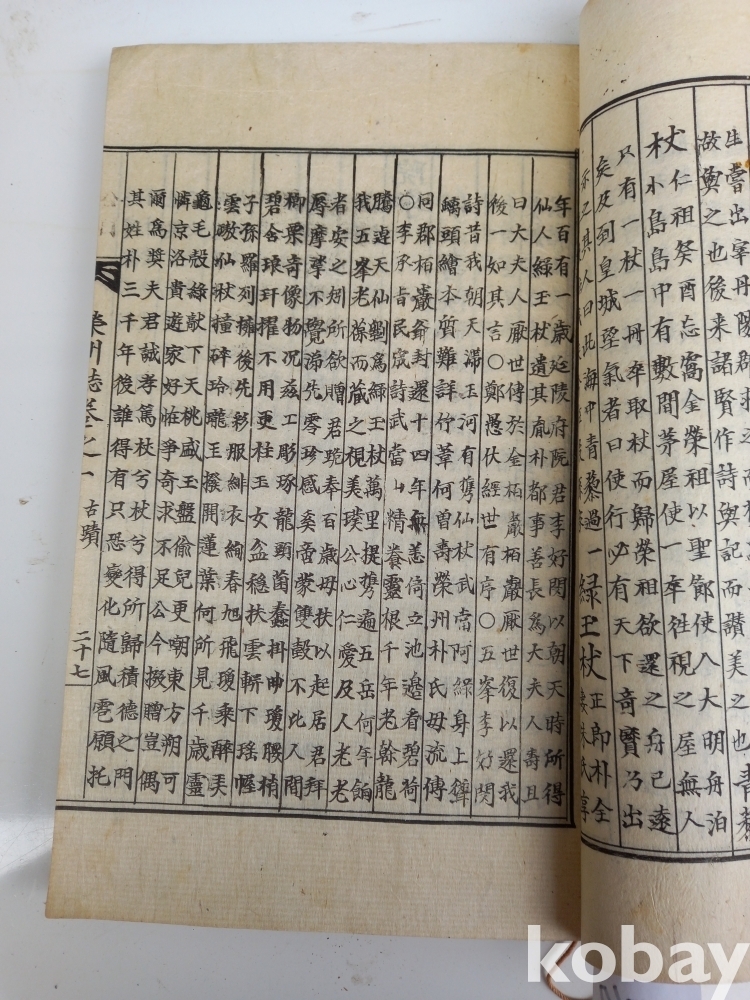 生嘗出宰丹陽郡
倣輿之也後来諸郡賢作詩與記而讃美
杖仁祖癸酉忘窩金榮祖以聖節使入大明舟泊
小島島中有數間茅屋使一卒徃視之屋無人
只有一杖一冊卒取杖而歸榮祖欲還之舟已遠
矣及到皇城望氣者曰使行必有天下奇寶乃出
示之其人曰此海中青藜過一綠玉杖正郎朴全
年百有一歲延陵府院君李好閔以朝天時所得
仙人綠玉杖遺其胤朴都事善長爲大夫人壽且
曰大夫人厭世傳於金柘巖柘巖厭世復以還我
後一如其言○鄭愚伏經世有序○五峯李好閔
詩昔我朝天滞玉河有雋仙杖武當阿綠身上鐔
螭頭繪本質難詳竹葦何曾耈榮州朴氏母流傳
同郡栢巖翁封還十四年無恙倚立池邊看碧荷
○李承旨民宬詩武當山精養靈根千年老榦龍
騰逴天仙劉爲綠玉杖萬里提携遍五岳何年餉
我五峯老葆而蔵之視美璞公心仁愛及人老老
者安之矧所欲贈君琬奉百歳母扶以起居君拜
辱摩挲不覺涕先零珍感奚啻蒙雙瑴不比人間
柳栗奇像物况茲工彫琢龍頭菌蠢掛曲瓊腰梢
碧舍琅玕擢不用更柱玉女盆穩扶雲軿下瑤幄
子孫羅列擁後先彩服緋衣絢春旭飛瓊乘醉弄
雲璈仙杖撞碎玲瓏玉撥開蓮葉何所見千歳靈
龜毛殼綠獻下天桃盛玉盤偷兒更嘲東方朔可
憐京洛貴遊家好恠爭奇求不足公今掇贈豈偶
爾爲奨夫君誠孝篤杖兮杖兮得所歸積德之門
其姓朴三千年後誰得有只恐變化隨風雹願托
榮州誌卷之一 古蹟 二十七
kobay